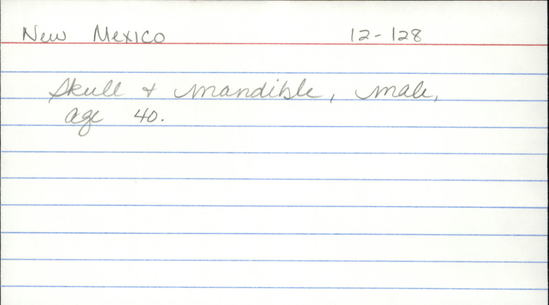 New Mexico 12-128
Skull & mandible, male,
age 40.